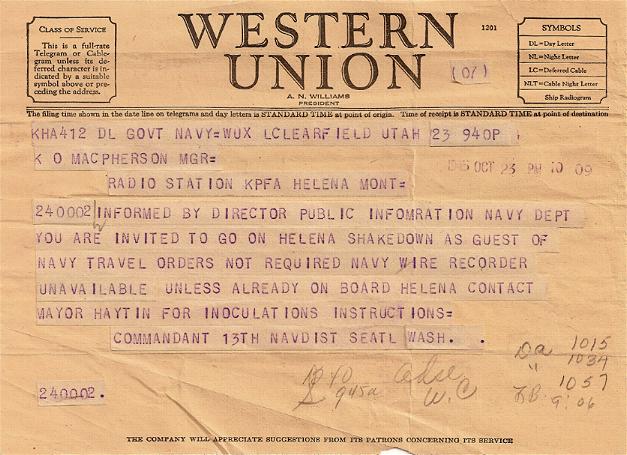 CLASS OF SERVICE
This is a full-rate
Telegram or Cable-
gram unless its de-
ferred character is in-
dicated by a suitable
symbol above or pre-
ceding the address.
WESTERN
UNION
1201
(07)
A. N. WILLIAMS
PRESIDENT
SYMBOLS
DL=Day Letter
NL=Night Letter
LC=Deferred Cable
NLT=Cable Night Letter
Ship Radiogram
The filing time shown in the date line on telegrams and day letters is STANDARD TIME at point of origin. Time of receipt is STANDARD TIME at point of destination
KHA412 DL GOVT NAVY=WUX LCLEARFIELD UTAH 23 940P
K O MACPHERSON MGR=
1945 OCT 23 PM 10 09
RADIO STATION KPFA HELENA MONT=
240002 INFORMED BY DIRECTOR PUBLIC INFOMRATION NAVY DEPT
YOU ARE INVITED TO GO ON HELENA SHAKEDOWN AS GUEST OF
NAVY TRAVEL ORDERS NOT REQUIRED NAVY WIRE RECORDER
UNAVAILABLE UNLESS ALREADY ON BOARD HELENA CONTACT
MAYOR HAYTIN FOR INOCULATIONS INSTRUCTIONS=
COMMANDANT 13TH NAVDIST SEATL WASH. .
Da 1015
" 1034
1057
9:06
945a
W.C
240002.
THE COMPANY WILL APPRECIATE SUGGESTIONS FROM ITS PATRONS CONCERNING ITS SERVICE